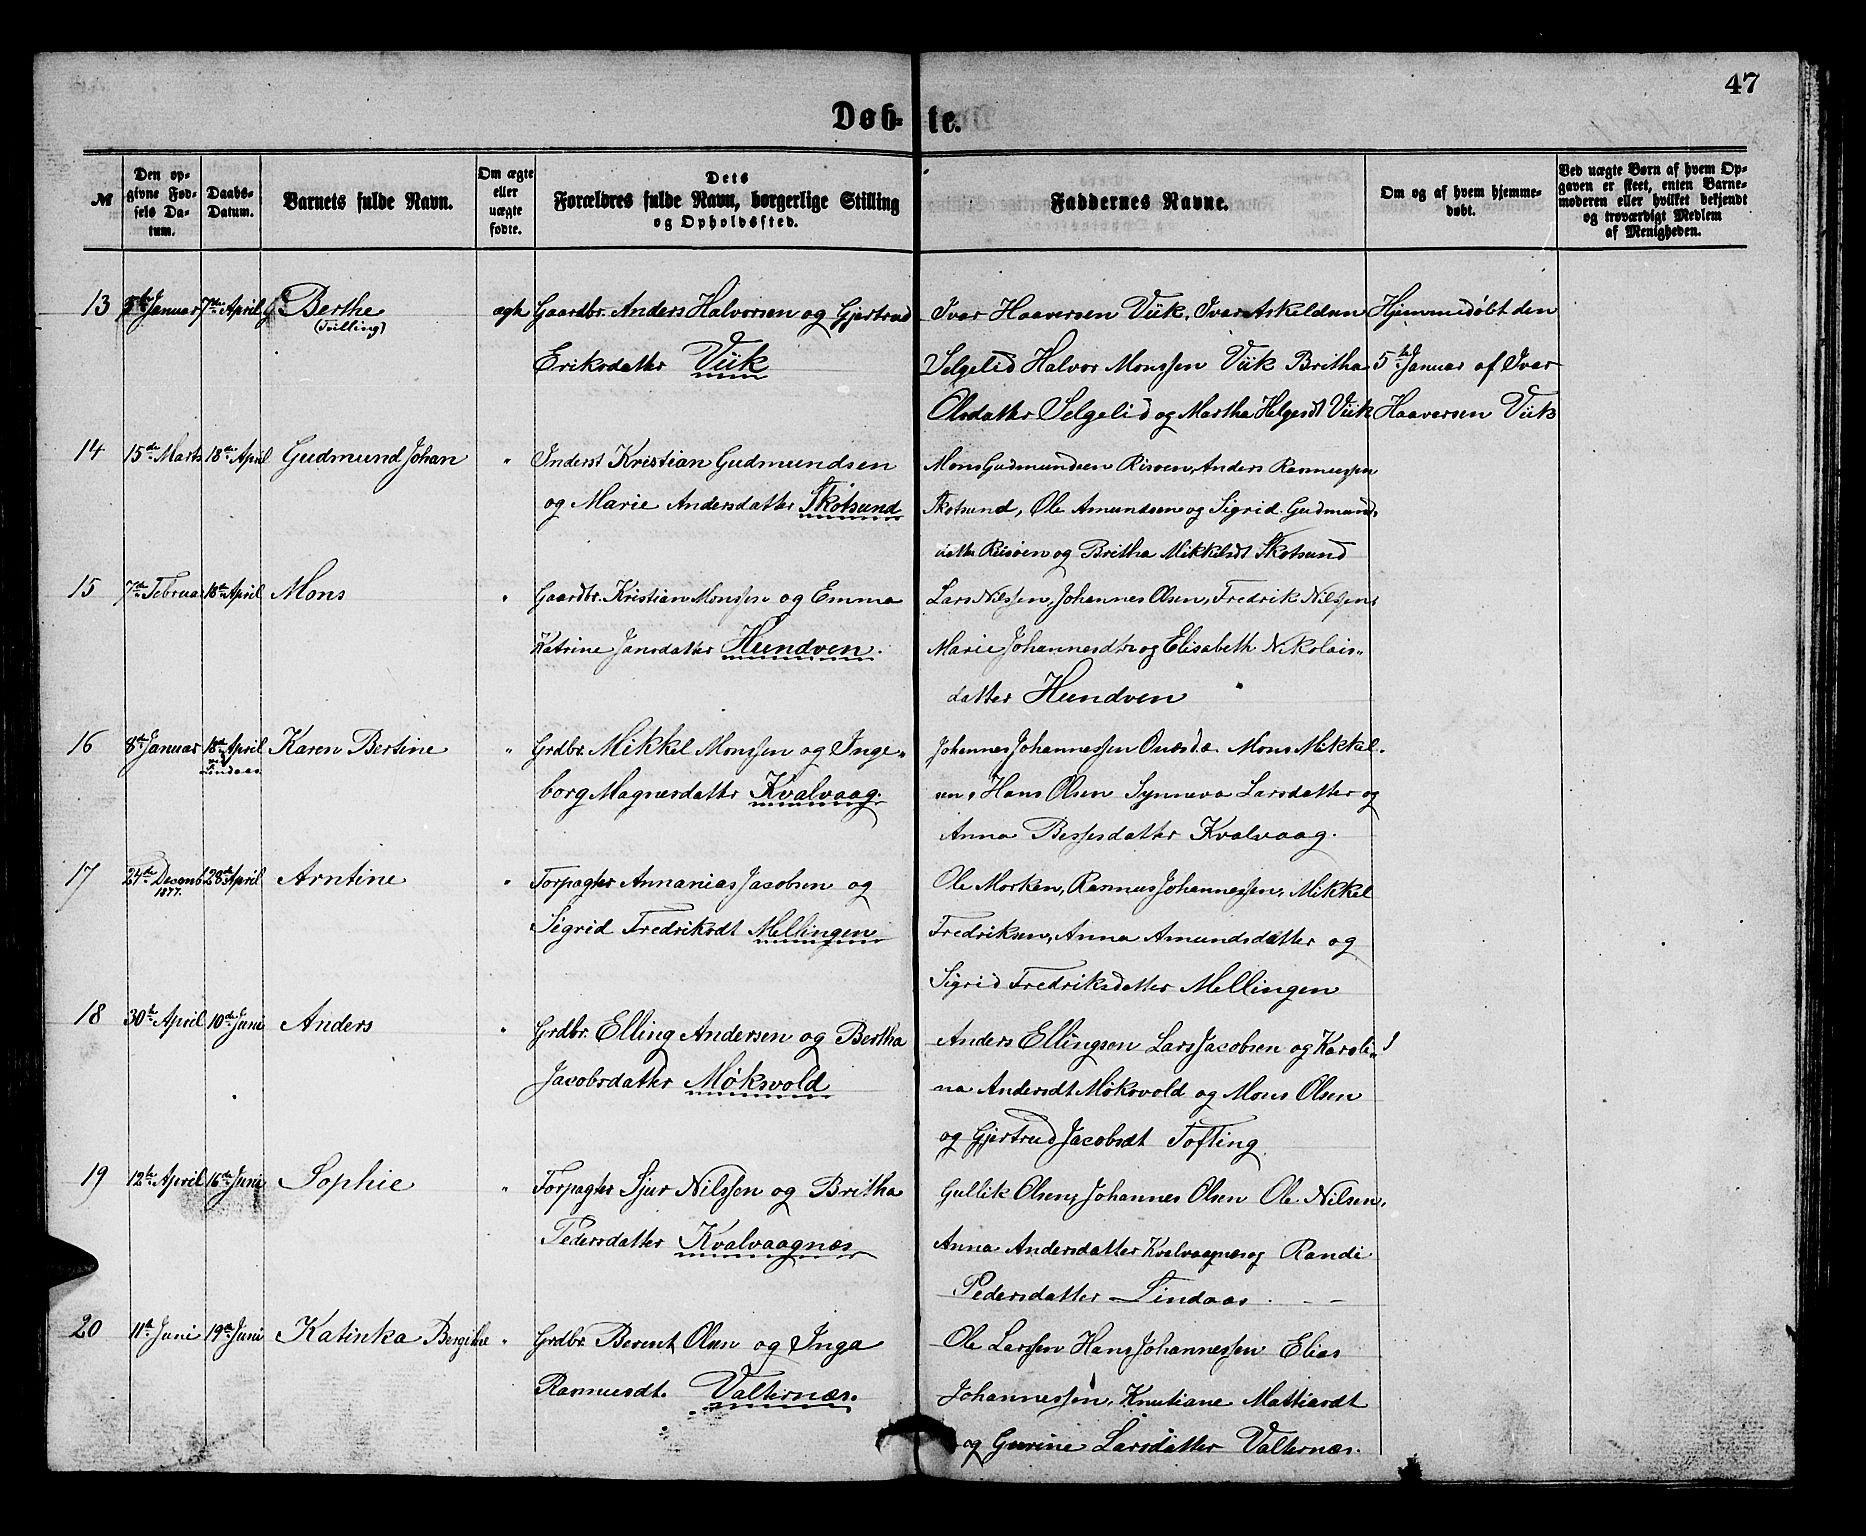 47
Døb- te.
№
Den opgivne Fødsels Datum.
Daabs-Datum.
Barnets fulde Navn.
Om ægte eller uægte fødte.
Dets Forældres fulde Navn, borgerlige Stilling og Opholdssted.
Faddernes Navne.
Om og af hvem hjemmedøbt.
Ved uægte Børn af hvem Opgaven er skeet, enten Barnemoderen eller hvilket bekjendt og troværdigt Medlem af Menigheden.
13 5te Januar 7de April Berthe ægte Gaardbr. Anders Halvorsen og Gjertrud Ivar Haaversen Viik, Ivar Askeldsen Hjemmedøbt den
(Tvilling)
Eriksdatter Viik Selgelid Halvor Monssen Viik Britha 5te Januar af Ivar
Olsdatter Selgelid og Martha Helgesdt Viik Haaversen Viik
14 15de Marts 18de April Gudmund Johan " Inderst Kristian Gudmundsen Mons Gudmundsen Risøen, Anders Rasmussen
og Marie Andersdatter Skotsund Skotsund, Ole Amundsen og Sigrid Gudmunds
datter Risøen og Britha Mikkelsdt Skotsund
15 7de Februar 18de April Mons " Gaardbr. Kristian Monssen og Emma Lars Nilssen, Johannes Olsen, Fredrik Nilssen,
Katrine Jansdatter Hundven. Marie Johannesdtr og Elisabeth Nikolais-
datter Hundven
16 8de Januar 18de April Karen Bertine " Grdbr. Mikkel Monssen og Inge- Johannes Johannessen Mons Mikkel-
ved Lindaas
borg Magnesdatter Kvalvaag. sen, Hans Olsen Synneva Larsdatter og
Anna Bessesdatter Kvalvaag.
17 24de Decemb. 28de April Arntine " Forpagter Annanias Jacobsen og Ole Morken, Rasmus Johannessen, Mikkel
1877.
Sigrid Fredriksdt Mellingen Fredriksen, Anna Amundsdatter og
Sigrid Fredriksdatter Mellingen
18 30te April 10de Juni Anders " Grdbr. Elling Andersen og Bertha Anders Ellingsen Lars Jacobsen og Karoli-
Jacobsdatter Møksvold na Andersdt Møksvold og Mons Olsen
og Gjertrud Jacobsdt Tofting
19 12te April 16de Juni Sophie " Forpagter Sjur Nilssen og Britha Gullik Olsen, Johannes Olsen Ole Nilsen,
Pedersdatter Kvalvaagnæs Anna Andersdatter Kvalvaagnæs og Randi
Pedersdatter Lindaas
20 11te Juni 19de Juni Katinka Bergithe " Grdbr. Berent Olsen og Inga Ole Larssen Hans Johannessen Elias
Rasmusdt. Valternæs. Johannessen, Knutiane Mattiasdt
og Gurine Larsdatter Valternæs.